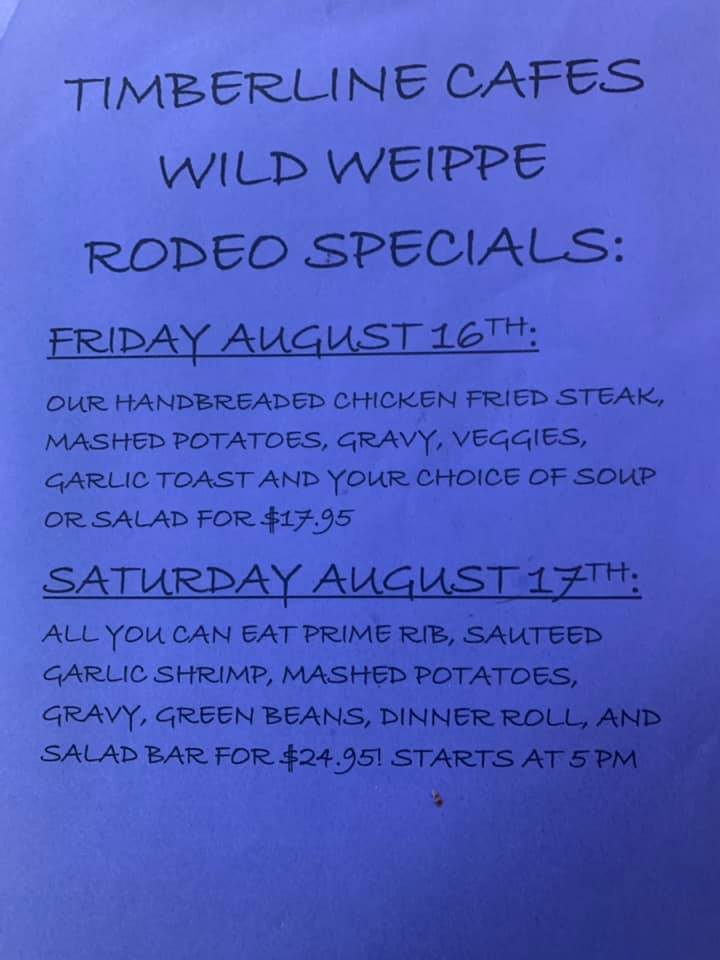 TIMBERLINE CAFES
WILD WEIPPE
RODEO SPECIALS:
FRIDAY AUGUST 16TH:
OUR HANDBREADED CHICKEN FRIED STEAK,
MASHED POTATOES, GRAVY, VEGGIES,
GARLIC TOAST AND YOUR CHOICE OF SOUP
OR SALAD FOR $17.95
SATURDAY AUGUST 17TH:
ALL YOU CAN EAT PRIME RIB, SAUTEED
GARLIC SHRIMP, MASHED POTATOES,
GRAVY, GREEN BEANS, DINNER ROLL, AND
SALAD BAR FOR $24.95! STARTS AT 5 PM